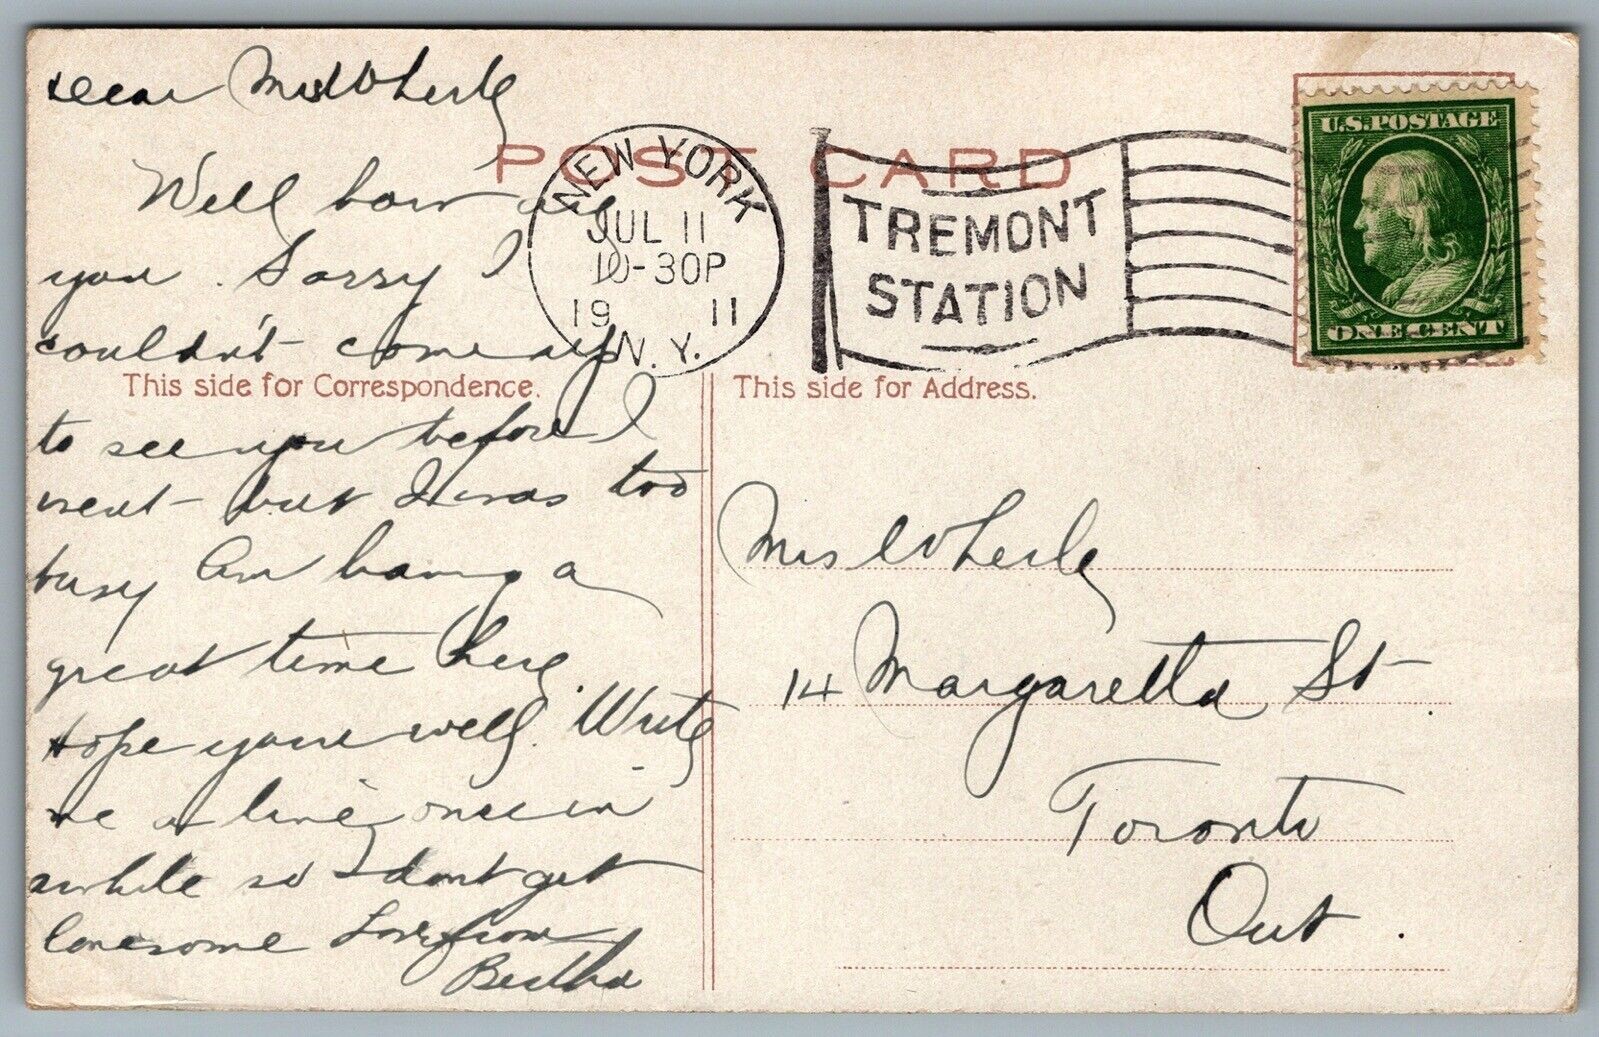 Dear Mrs Wherly
Well how are
you. Sorry I
couldn't come up
to see you before I
went - but I was too
busy Am having a
great time here.
Hope your well. Write
me a line once in
awhile so I dont get
lonesome Love from
Bertha
POST CARD
NEW YORK
JUL 11
10-30P
19 11
N.Y.
TREMONT
STATION
U.S. POSTAGE
ONE CENT
This side for Correspondence.
This side for Address.
Mrs Wherly
14 Margaretta St.
Toronto
Ont.